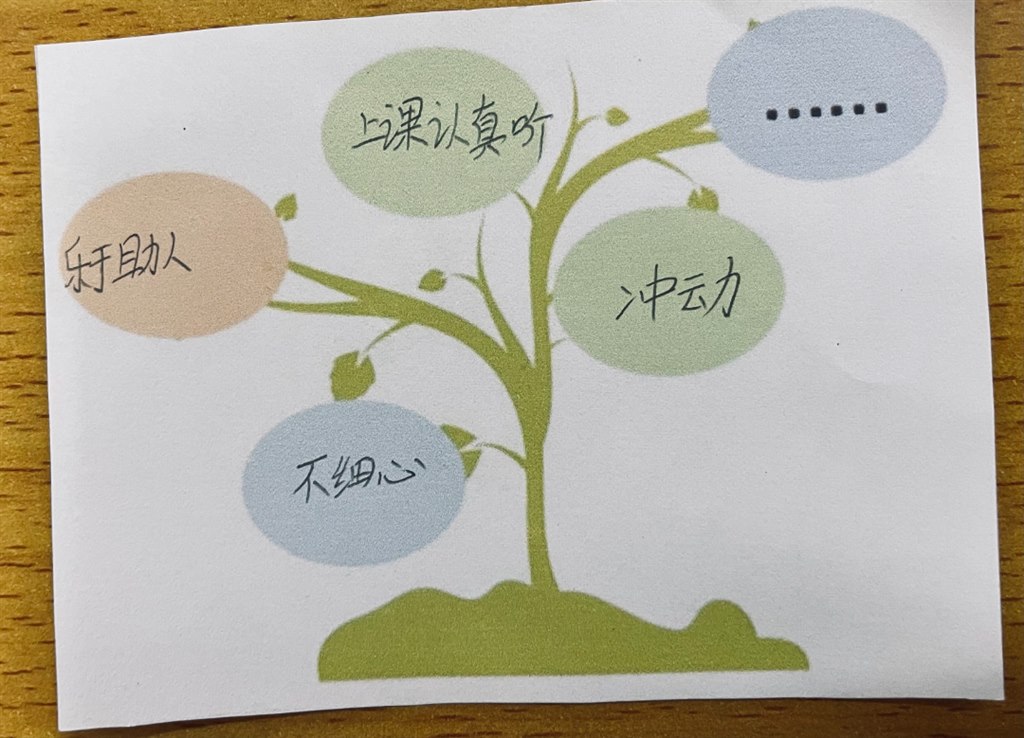 上课认真听
......
乐于助人
冲动力
不细心